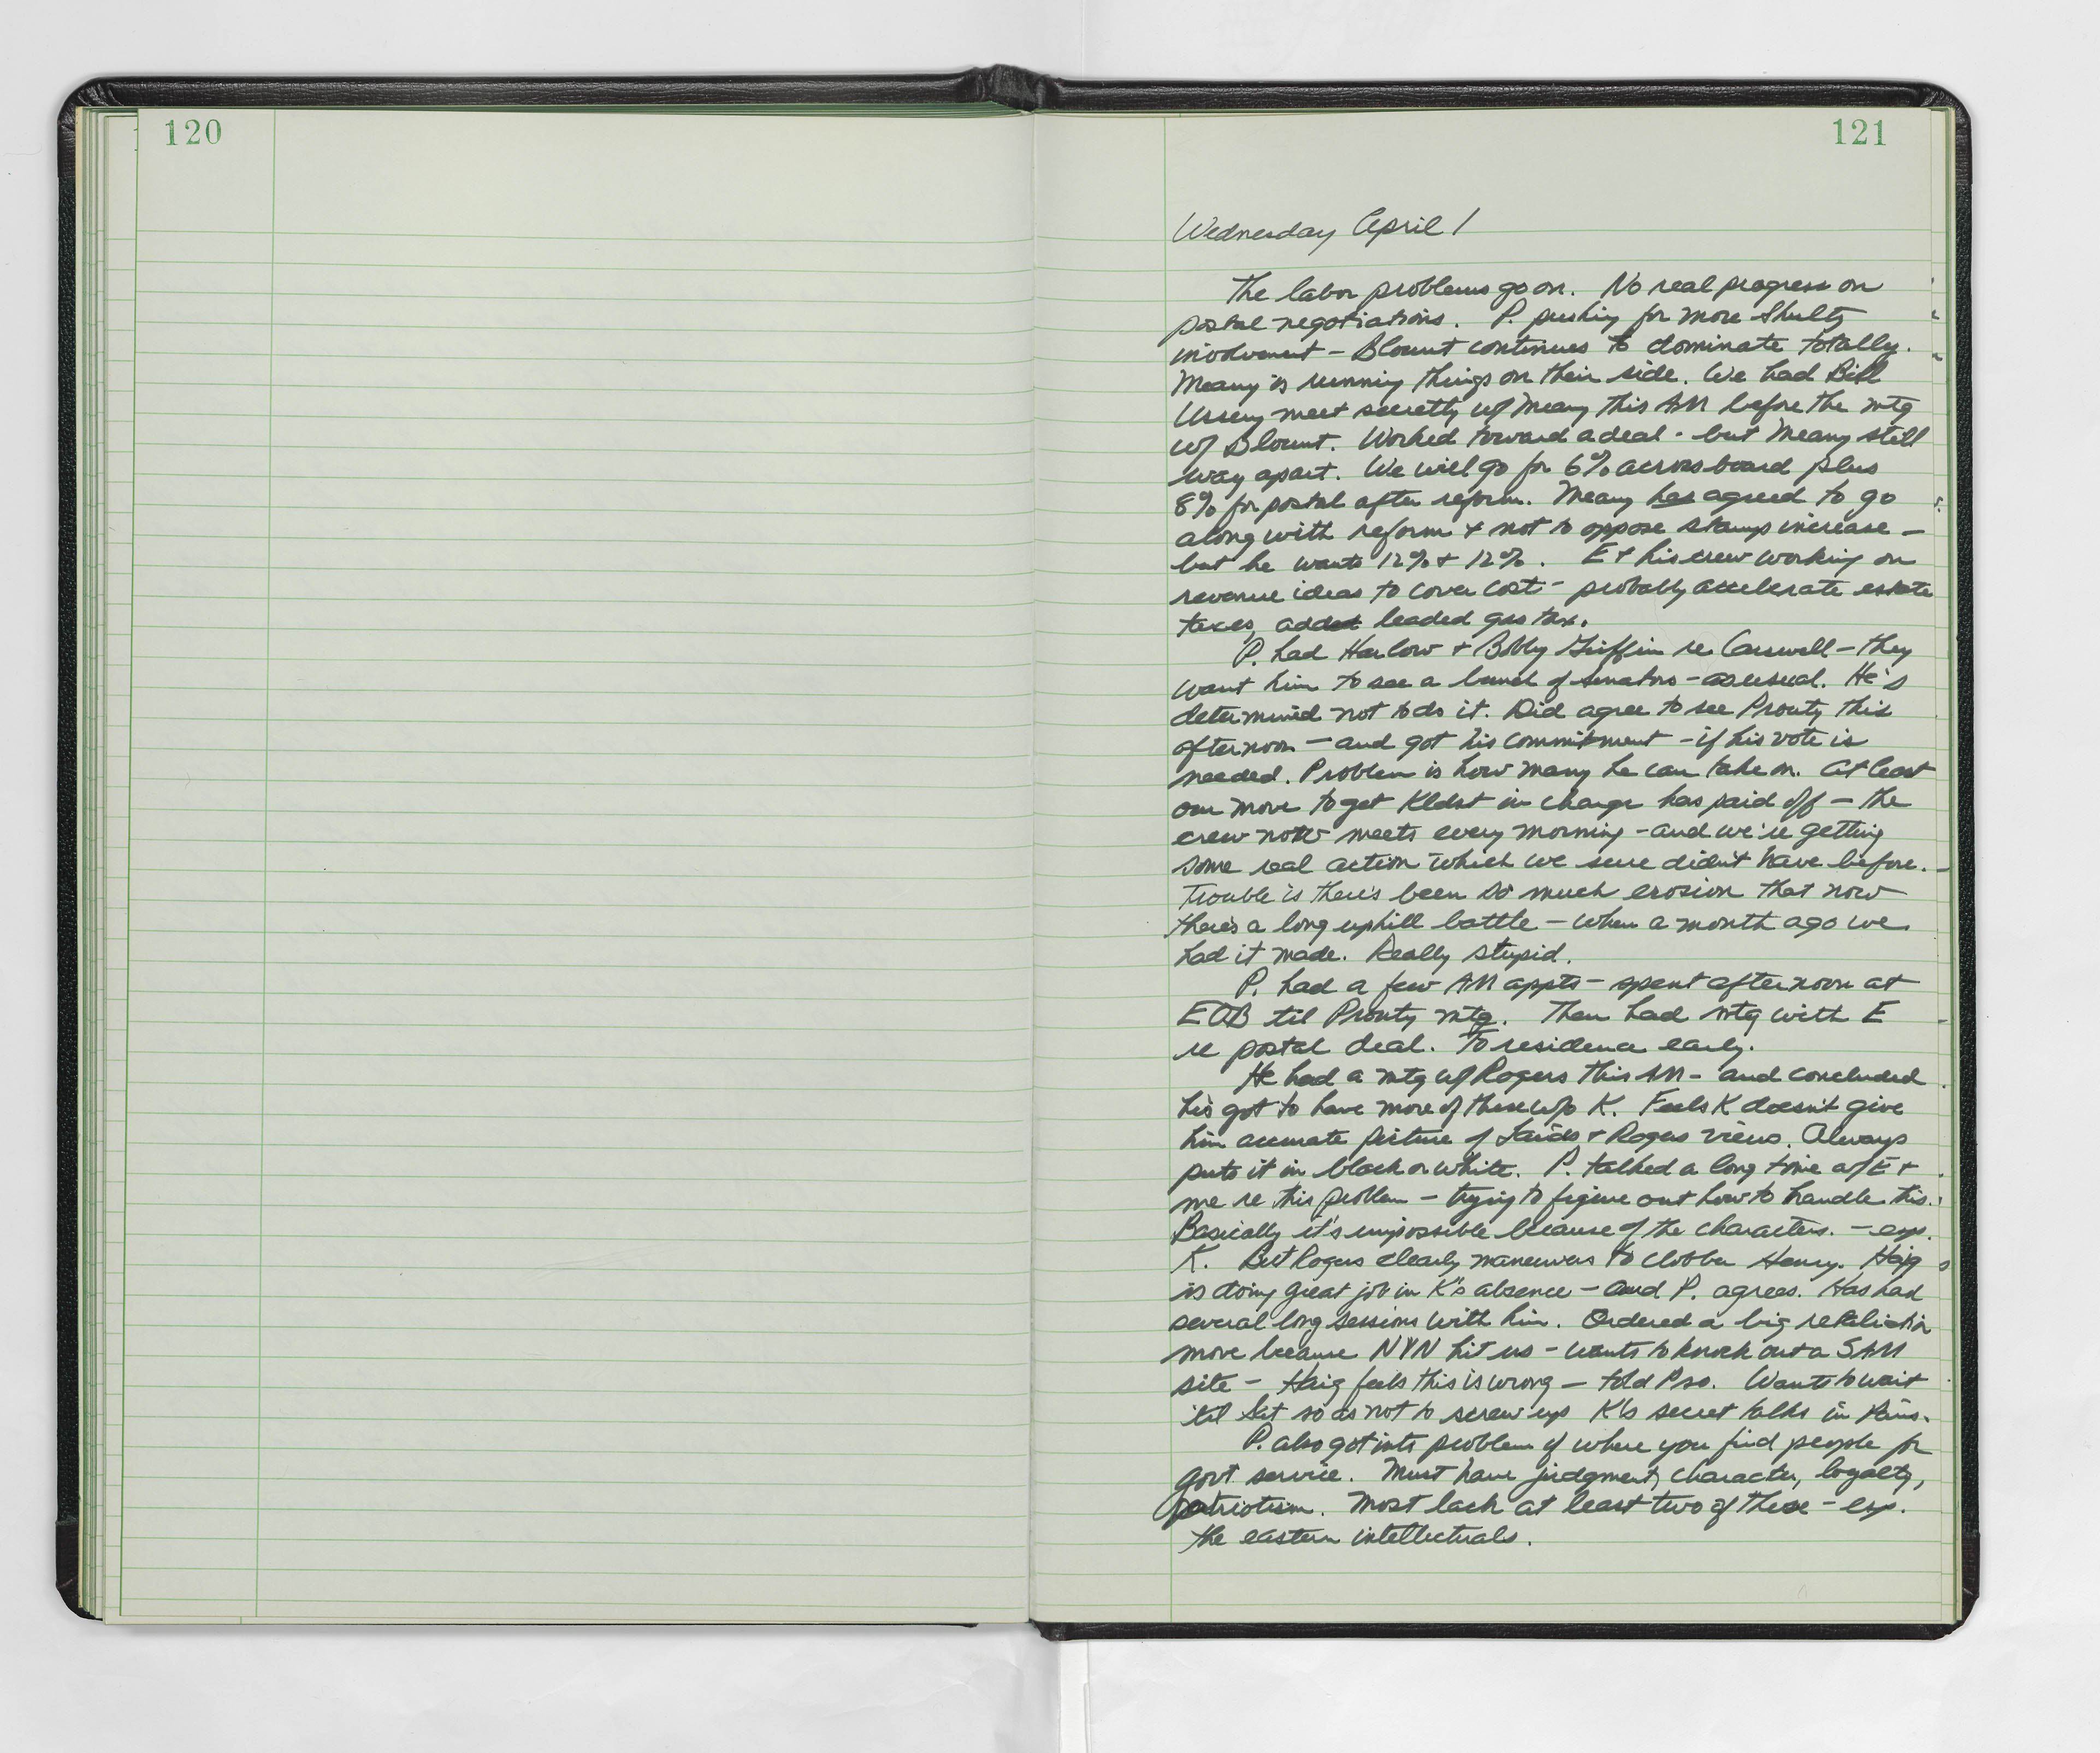 120
121
Wednesday April 1
The labor problems go on. No real progress on
postal negotiations. P. pushing for more Shultz
involvement - Blount continues to dominate totally.
Meany is running things on their side. We had Bill
Ussery meet secretly w/ Meany this AM before the mtg
w/ Blount. Worked toward a deal - but Meany still
way apart. We will go for 6% across board plus
8% for postal after reform. Meany has agreed to go
along with reform & not to oppose stamp increase -
but he wants 12% + 12%. E & his crew working on
revenue ideas to cover cost - probably accelerate estate
taxes, add leaded gas tax.
P. had Harlow & Bobby Griffin re Carswell - they
want him to see a bunch of senators - as usual. He's
determined not to do it. Did agree to see Prouty this
afternoon - and got his commitment - if his vote is
needed. Problem is how many he can take on. At least
our move to get Kldst in charge has paid off - the
crew now meets every morning - and we're getting
some real action which we sure didn't have before.
Trouble is there's been so much erosion that now
there's a long uphill battle - when a month ago we
had it made. Really stupid.
P. had a few AM appts - spent afternoon at
EOB til Prouty mtg. Then had mtg with E
re postal deal. To residence early.
He had a mtg w/ Rogers this AM - and concluded
he's got to have more of these w/o K. Feels K doesn't give
him accurate picture of Laird's & Rogers views. Always
puts it in black or white. P. talked a long time w/ E &
me re this problem - trying to figure out how to handle this.
Basically it's impossible because of the characters. - esp.
K. But Rogers clearly maneuvers to clobber Henry. Haig
is doing great job in K's absence - and P. agrees. Has had
several long sessions with him. Ordered a big retaliation
move because NVN hit us - wants to knock out a SAM
site - Haig feels this is wrong - told P so. Wants to wait
'til Sat so as not to screw up K's secret talks in Paris.
P. also got into problem of where you find people for
govt service. Must have judgment, character, loyalty,
patriotism. Most lack at least two of these - esp.
the eastern intellectuals.